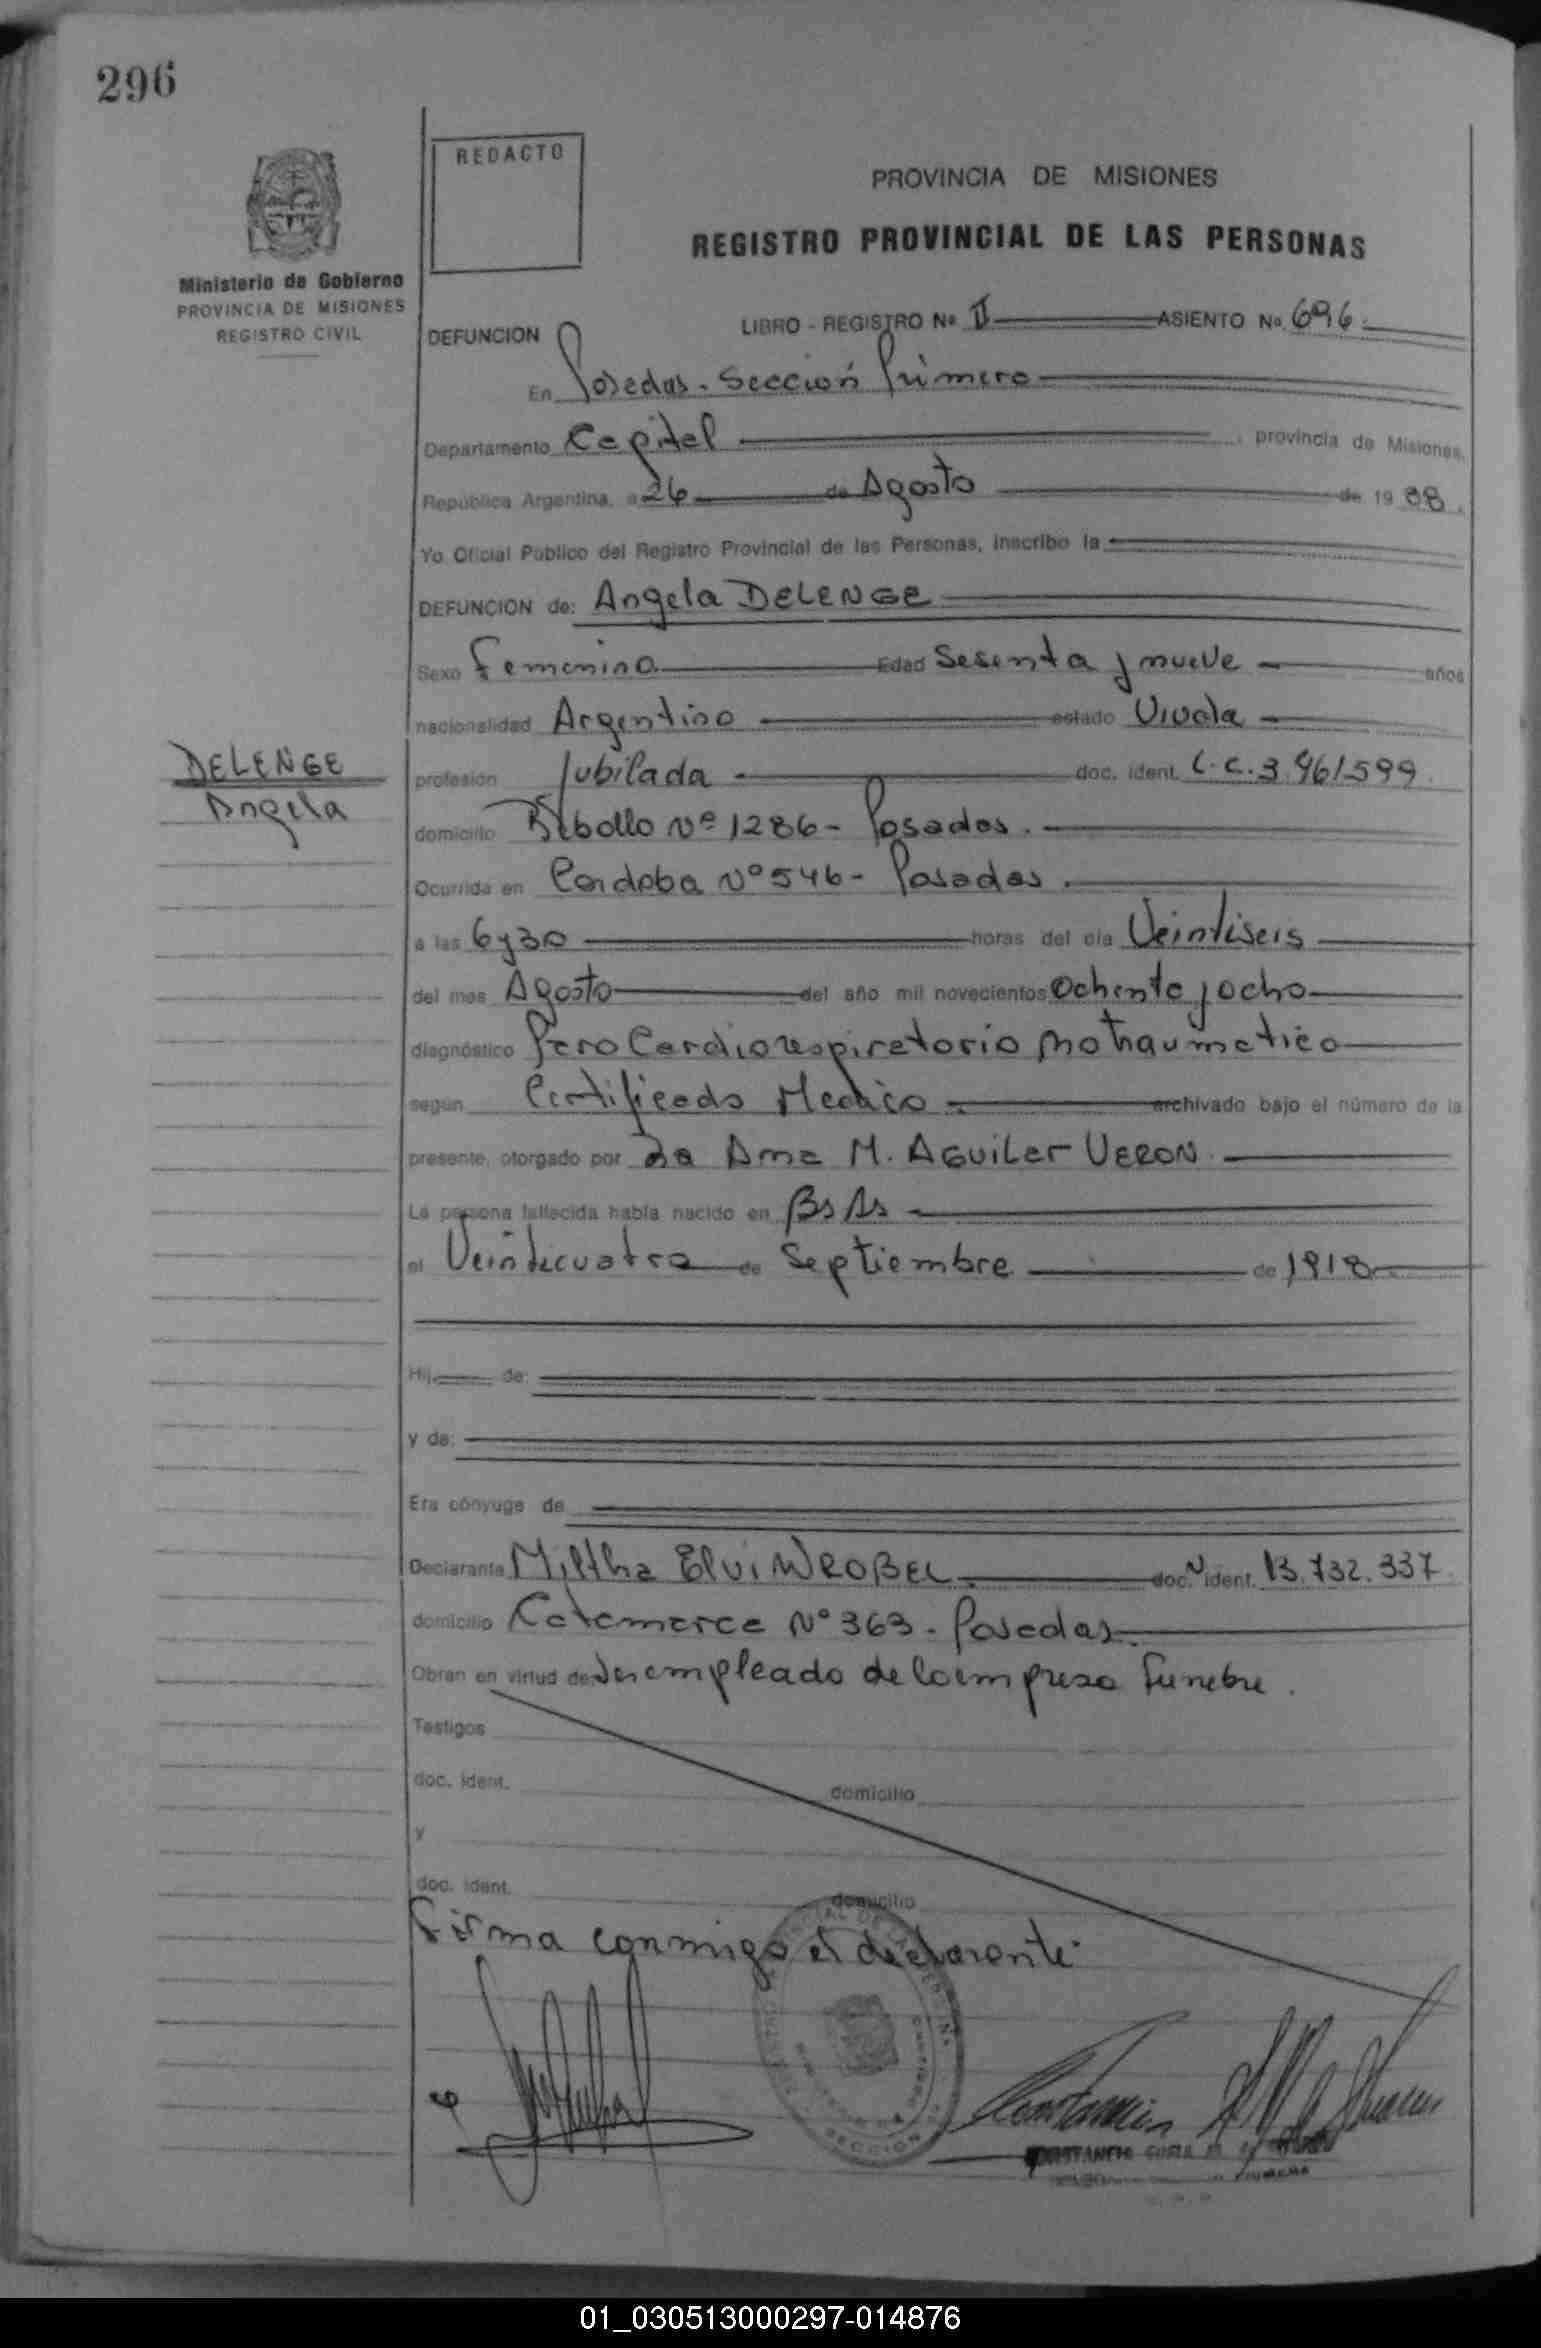 296
REDACTO
PROVINCIA DE MISIONES
REGISTRO PROVINCIAL DE LAS PERSONAS
Ministerio de Gobierno
PROVINCIA DE MISIONES
REGISTRO CIVIL
DEFUNCION
LIBRO - REGISTRO Nº II ASIENTO Nº 696
En Posadas - Sección Primera
Departamento Capital, provincia de Misiones,
República Argentina, a 26 de Agosto de 1988.
Yo Oficial Público del Registro Provincial de las Personas, inscribo la
DEFUNCION de: Angela DELENGE
Sexo Femenino Edad Sesenta y nueve años
nacionalidad Argentina estado Viuda
DELENGE
Angela
profesión Jubilada doc. ident. L.C. 3.961.599
domicilio Nº 1286 - Posadas.
Ocurrida en Cordoba Nº 546 - Posadas.
a las 6 y 30 horas del día Veintiseis
del mes Agosto del año mil novecientos Ochenta y ocho
diagnóstico Paro Cardiorespiratorio no traumatico
según Certificado Medico archivado bajo el número de la
presente, otorgado por Ana M. AGUILAR VERON.
La persona fallecida había nacido en Bs As
el Veinticuatro de Septiembre de 1918
Hij de:
y de:
Era cónyuge de
Declarante Miltha Elvi WROBEL doc. ident. 13.732.337
domicilio Catamarca Nº 363 - Posadas.
Obran en virtud de: Ser empleado de la empresa funebre.
Testigos
doc. ident. domicilio
y
doc. ident. domicilio
Firma conmigo el declarante.
SECCION
01_030513000297-014876